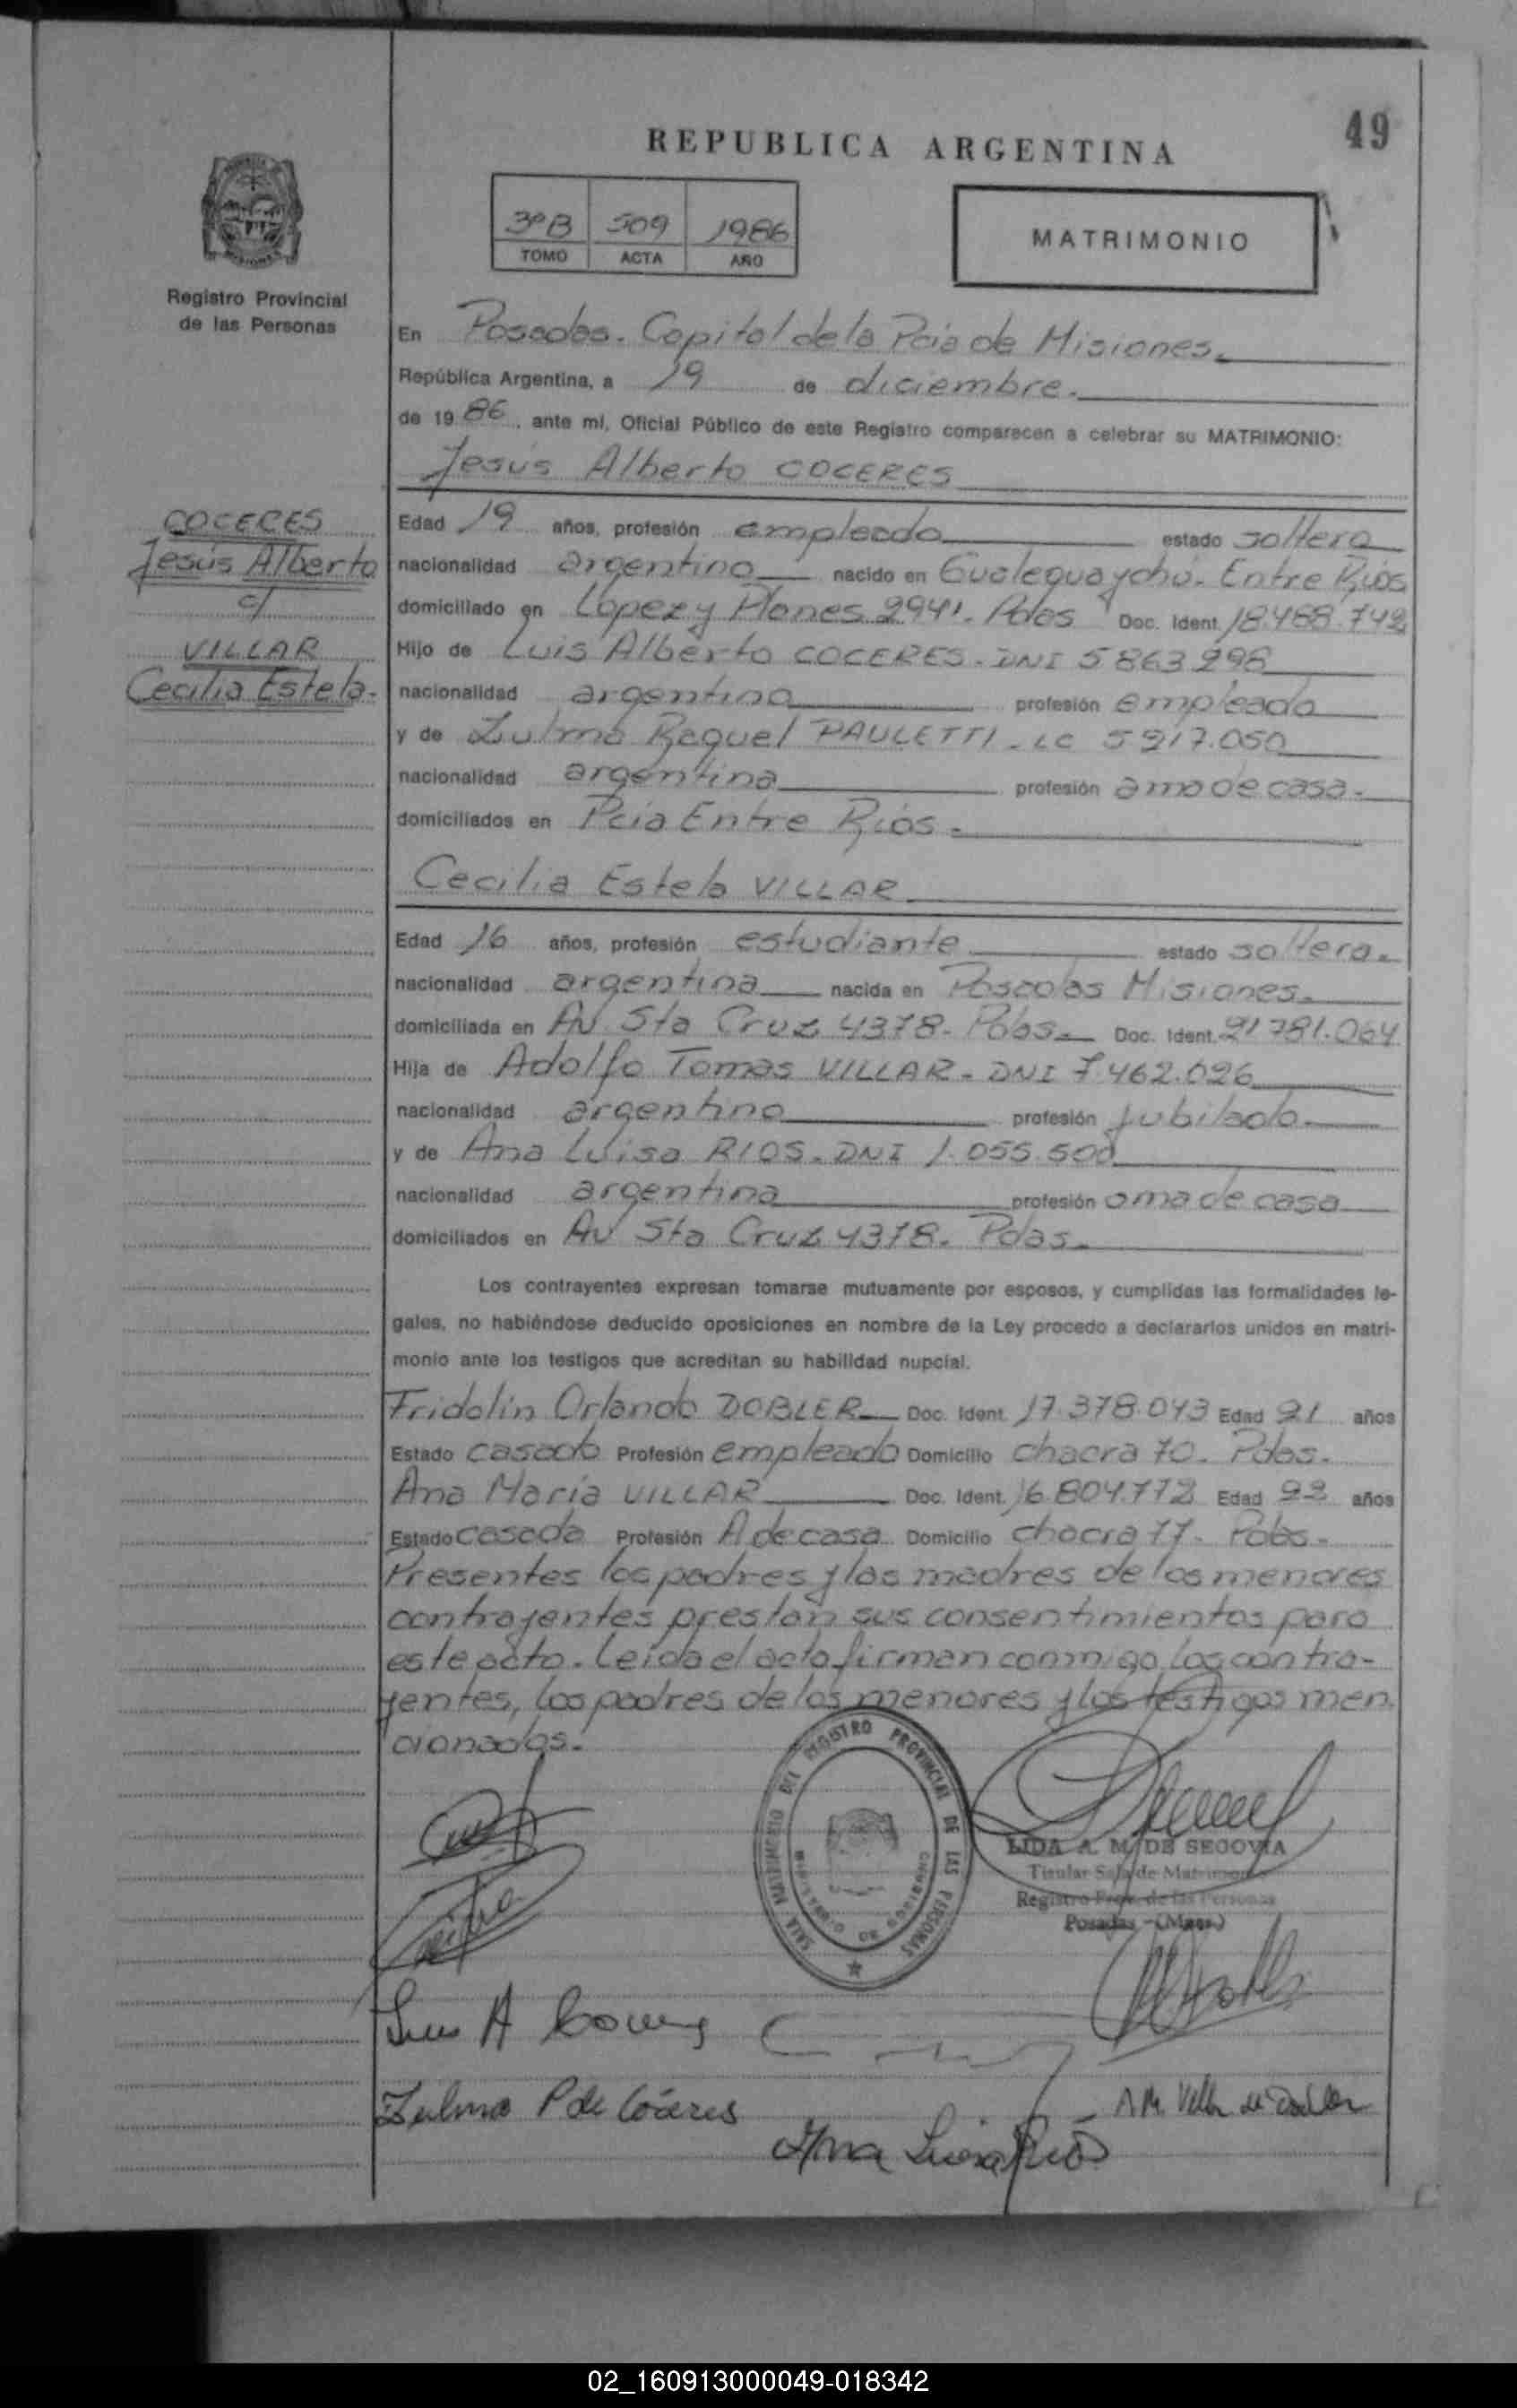 49
REPUBLICA ARGENTINA
3ºB 509 1986
TOMO ACTA AÑO
MATRIMONIO
Registro Provincial
de las Personas
En Posadas. Capital de la Pcia de Misiones.
República Argentina, a 19 de diciembre.
de 1986, ante mí, Oficial Público de este Registro comparecen a celebrar su MATRIMONIO:
Jesús Alberto COCERES
COCERES
Jesús Alberto
c/
VILLAR
Cecilia Estela-
Edad 19 años, profesión empleado estado soltero
nacionalidad argentino nacido en Gualeguaychú. Entre Ríos
domiciliado en Lopez y Planes 2941. Pdas Doc. Ident. 18.468.742
Hijo de Luis Alberto COCERES. DNI 5863298
nacionalidad argentino profesión empleado
y de Zulma Raquel PAULETTI. LC 5217.050
nacionalidad argentina profesión ama de casa.
domiciliados en Pcia Entre Ríos.
Cecilia Estela VILLAR
Edad 16 años, profesión estudiante estado soltera.
nacionalidad argentina nacida en Posadas Misiones.
domiciliada en Av. Sta Cruz 4378. Pdas. Doc. Ident. 21781.064
Hija de Adolfo Tomas VILLAR. DNI 7.462.026
nacionalidad argentino profesión jubilado.
y de Ana Luisa RIOS. DNI 1.055.500
nacionalidad argentina profesión ama de casa
domiciliados en Av Sta Cruz 4378. Pdas.
Los contrayentes expresan tomarse mutuamente por esposos, y cumplidas las formalidades le-
gales, no habiéndose deducido oposiciones en nombre de la Ley procedo a declararlos unidos en matri-
monio ante los testigos que acreditan su habilidad nupcial.
Fridolin Orlando DOBLER Doc. Ident. 17.378.043 Edad 21 años
Estado casado Profesión empleado Domicilio chacra 70. Pdas.
Ana María VILLAR Doc. Ident. 16.804.772 Edad 22 años
Estado casada Profesión A de casa Domicilio chacra 77. Pdas.
Presentes los padres y las madres de los menores
contrayentes prestan sus consentimientos para
este acto. Leída el acta firman conmigo, los contra-
yentes, los padres de los menores y los testigos men
cionados.
SALA MATRIMONIO DEL REGISTRO PROVINCIAL DE LAS PERSONAS
MINISTERIO DE GOBIERNO
LIDA A. M. DE SEGOVIA
Titular Sala de Matrimonio
Registro Prov. de las Personas
Posadas - (Mnes.)
Luis A Coceres
Zulma P de Cóceres
A.M. Villar de Dobler
Ana Luisa Rios
02_160913000049-018342